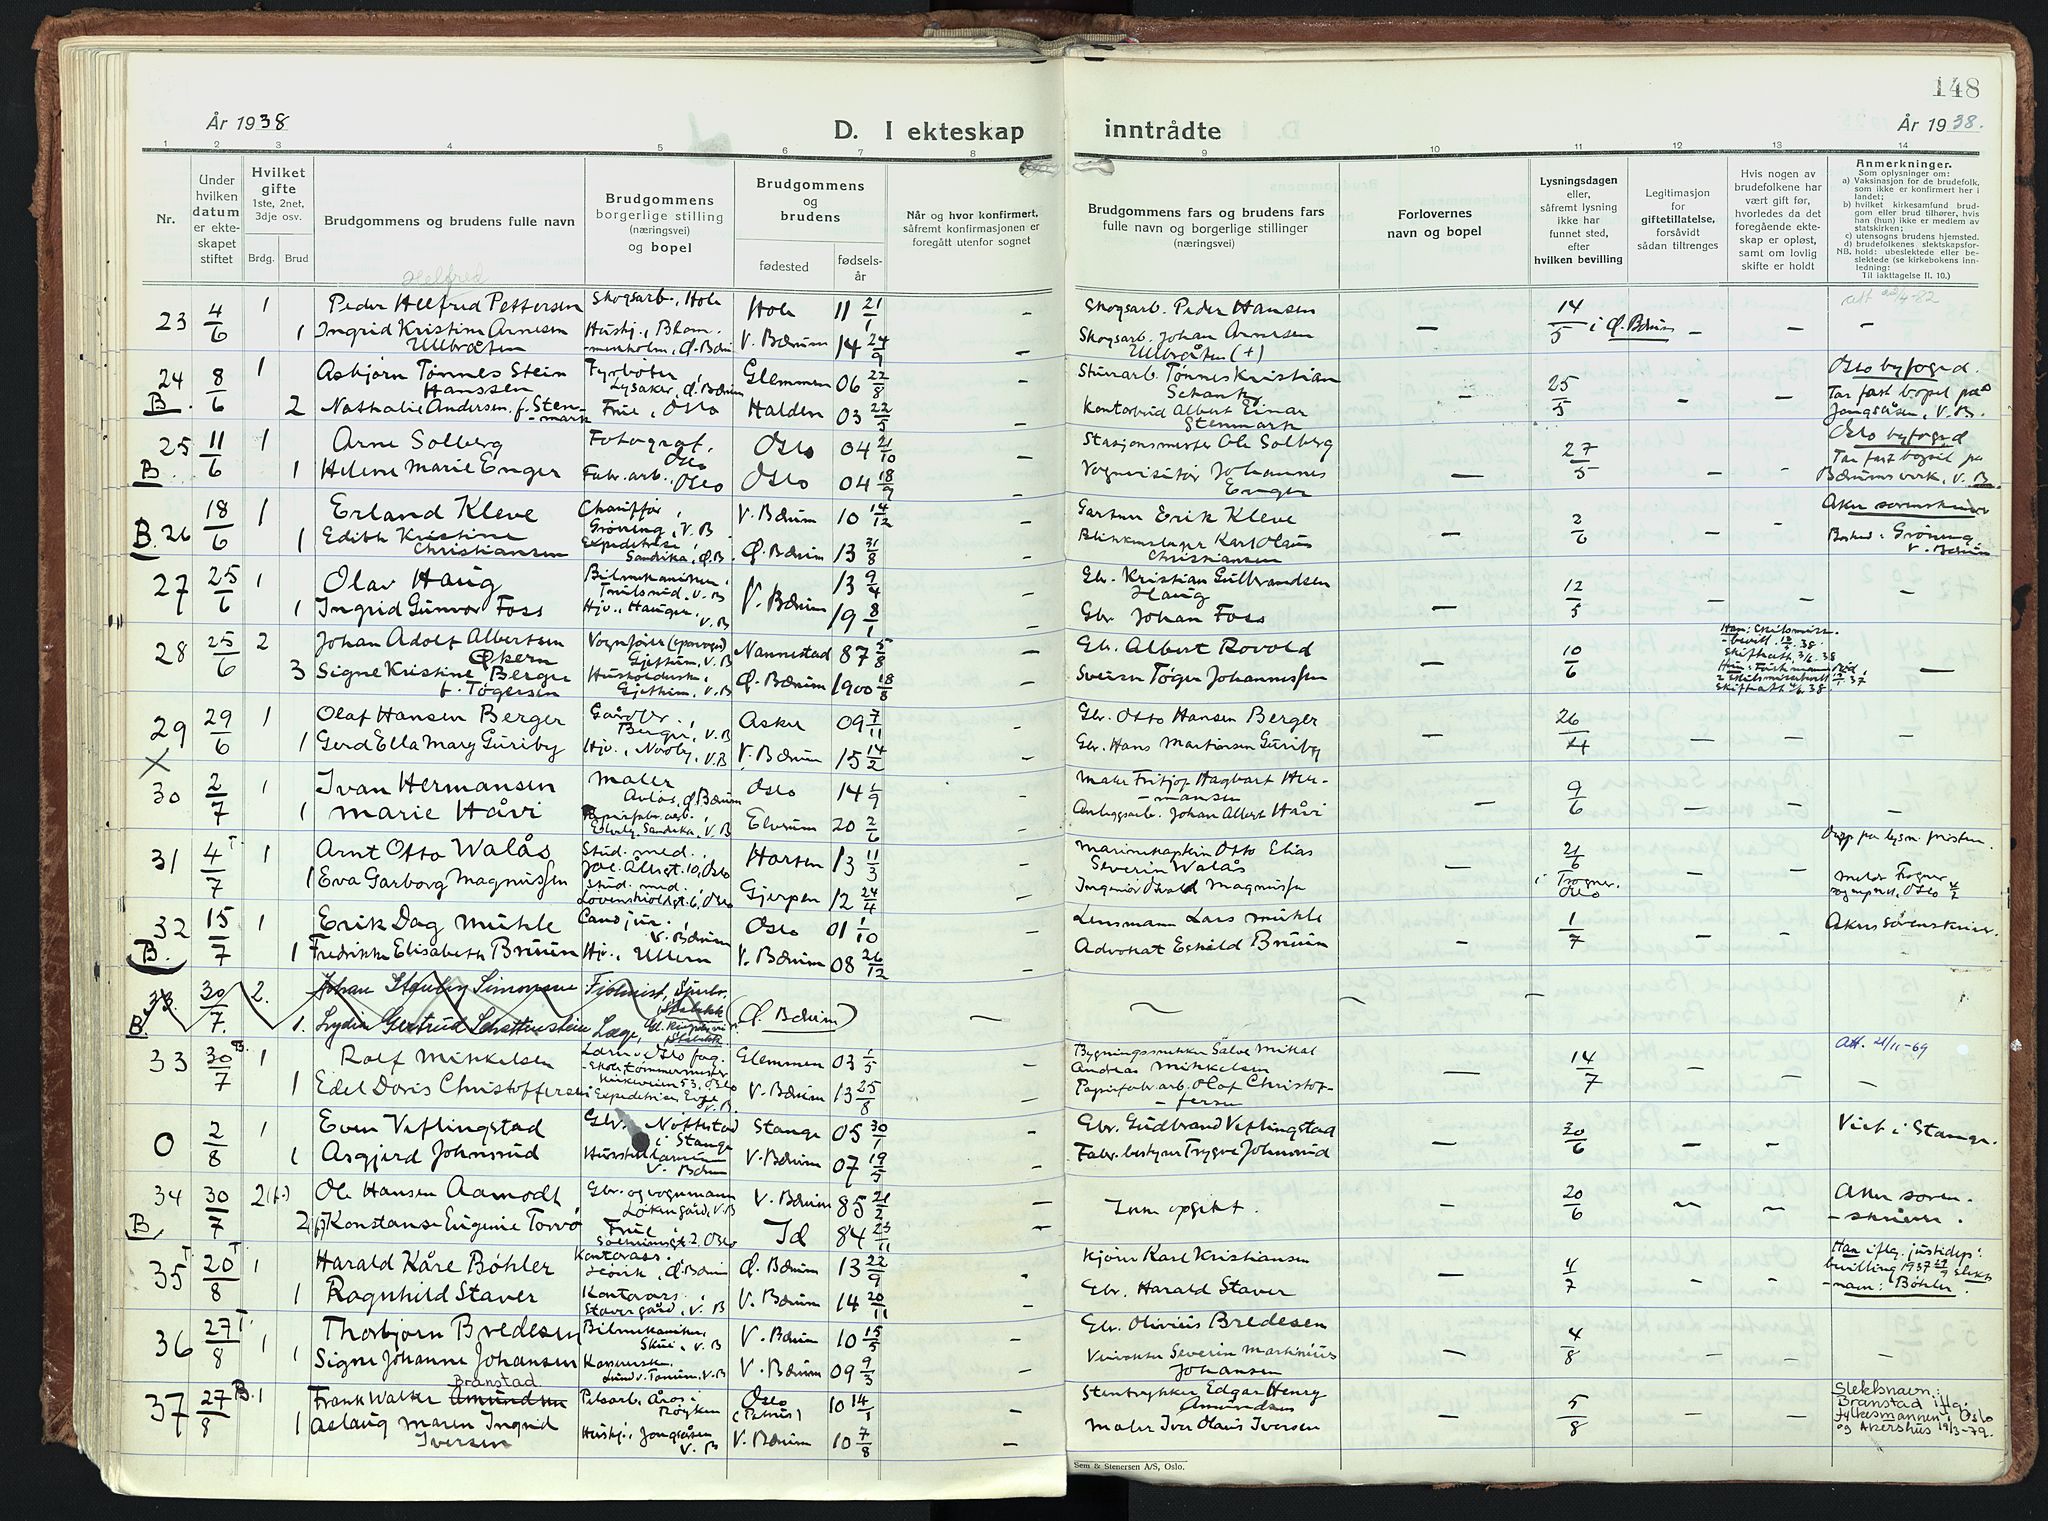 148
År 1938
D. I ekteskap inntrådte
År 1938.
1 2 3 4 5 6 7 8 9 10 11 12 13 14
Nr.
Under hvilken datum er ekteskapet stiftet
Hvilket gifte 1ste, 2net, 3dje osv.
Brdg. Brud
Brudgommens og brudens fulle navn
Brudgommens borgerlige stilling (næringsvei) og bopel
Brudgommens og brudens
fødested
fødselsår
Når og hvor konfirmert, såfremt konfirmasjonen er foregått utenfor sognet
Brudgommens fars og brudens fars fulle navn og borgerlige stillinger (næringsvei)
Forlovernes navn og bopel
Lysningsdagen eller, såfremt lysning ikke har funnet sted, efter hvilken bevilling
Legitimasjon for giftetillatelse, forsåvidt sådan tiltrenges
Hvis nogen av brudefolkene har vært gift før, hvorledes da det foregående ekteskap er opløst, samt om lovlig skifte er holdt
Anmerkninger.
Som oplysninger om:
a) Vaksinasjon for de brudefolk, som ikke er konfirmert her i landet;
b) hvilket kirkesamfund brudgom eller brud tilhører, hvis han (hun) ikke er medlem av statskirken;
c) utensogns brudens hjemsted.
d) brudefolkenes slektskapsforhold: ubeslektede eller beslektede (se kirkebokens innledning:
NB. Til iakttagelse II. 10.)
Helfred
23 4/6 1 Peder Helfred Pettersen Skogsarb., Hole Hole 11 21/1 Skogsarb. Peder Hansen 14/5 i Ø. Bærum
1 Ingrid Kristine Arnesen Ullbråten V. Bærum 14 24/9 Skogsarb. Johan Arnesen Ullbråten (+)
24 8/6 1 Asbjørn Tønnes Stein Hanssen Fyrbøter, Lysaker, Ø. Bærum Glemmen 06 22/8 Tønnes Kristian Schank 25/5 Oslo byfogd.
B. 2 Nathalie Andersen f. Stenmark Frue, Oslo Halden 03 22/5 Kontorbud Albert Einar Stenmark Tar fast bopel på Jongsåsen, V. B.
25 11/6 1 Arne Solberg Fotograf, Oslo Oslo 04 21/10 Stasjonsmester Ole Solberg 27/5 Oslo byfogd
B. 1 Helene Marie Enger Fabr.arb., Oslo Oslo 04 18/9 Vognvisitør Johannes Enger Tar fast bopel på Bærums verk, V. B.
B. 26 18/6 1 Erland Kleve Chauffør, Grøning, V. B V. Bærum 10 14/12 Gartner Erik Kleve 2/6 Aker sorenskriver
1 Edith Kristine Christiansen Expeditrise, Sandvika, Ø. B. Ø. Bærum 13 31/8 Blikkenslager Karl Olaus Christiansen Bosted: Grøning, V. Bærum
27 25/6 1 Olav Haug Bilmekaniker, V. B V. Bærum 13 9/4 Gbr. Kristian Gulbrandsen Haug 12/5
1 Ingrid Gunvor Foss Hjv., Haugen, V. B 19 8/1 Gbr Johan Foss
28 25/6 2 Johan Adolf Albertsen Økern Vognfører (sporvogn) Gjettum, V. B Nannestad 87 5/8 Gb. Albert Rovold 10/6
3 Signe Kristine Berger f. Tøgersen Husholdersk., Gjettum, V. B Ø. Bærum 1900 18/8 Sveiser Tøger Johannessen
29 29/6 1 Olaf Hansen Berger Gårdbr., Berger, V. B Asker 09 7/11 Gbr. Otto Hansen Berger 26/4
X 1 Gerd Ella Mary Guriby Hjv., V. B V. Bærum 15 14/2 Gbr. Hans Martinsen Guriby
30 2/7 1 Ivan Hermansen Maler Avløs, Ø. Bærum Oslo 14 1/9 Maler Fritjof Hagbart Hermansen 9/6
1 Marie Håvi Papirfabr.arb., Sandvika, V. B Elverum 20 2/6 Anleggsarb. Johan Albert Håvi
31 4/7 T. 1 Arnt Otto Walås Stud. med. Jac. Ållsgt. 10, Oslo Horten 13 11/3 Marinekaptein Otto Elias Severin Walås 21/6 i Frogner, Oslo Opp på lysn. fristen.
1 Eva Garborg Magnussen Stud. med. Løvenskioldsgt. 6, Oslo Gjerpen 12 24/4 Ingeniør Osvald Magnussen
32 15/7 1 Erik Dag Mühle Cand jur., V. Bærum Oslo 01 1/10 Lensmann Lars Mühle 1/7 Akers sorenskriver.
B. 1 Fredrikke Elisabeth Bruun Hjv., Ullern V. Bærum 08 26/12 Advokat Eskild Bruun
33. 30/7. 2. Johan Stenberg Simonsen Stabekk (Ø. Bærum)
B. 1. Lydia Gertrud Schattenstein Læge, Stabekk
33 30/7 B. 1 Rolf Mikkelsen Lærer v. Oslo fag-skole, tømmermester Kirkeveien 53, Oslo Glemmen 03 1/5 Bygningssnekker Salve Mikal Andreas Mikkelsen 14/7 att. 21/11-69
1 Edel Doris Christoffersen Expeditrise, V. B. V. Bærum 13 25/8 Papirfabr.arb. Olaf Christoffersen
0 2/8 1 Even Veflingstad Gbr. Nøttestad i Stange Stange 05 30/1 Gbr. Gudbrand Veflingstad 30/6 Viet i Stange.
1 Asgjerd Johnsrud V. Bærum V. Bærum 07 19/5 Fabr.bestyrer Trygve Johnsrud
34 30/7 2(f.) Ole Hansen Aamodt Gbr. og vognmann Løken gård, V. B V. Bærum 85 21/2 Inne opgitt. 20/6 Aker sorenskriver.
B 2(f) Konstanse Eugenie Torvø Frue Oslo Id 84 23/11
35 20/8 T. 1 Harald Kåre Bøhler Kontorass. Høvik, Ø. Bærum Ø. Bærum 13 22/9 Kjører Karl Kristiansen 4/7 Han iflg. justidep. bevilling 1937 slektsnavn: Bøhler.
1 Ragnhild Staver Kontorass., Staver gård, V. B V. Bærum 14 20/11 Gbr. Harald Staver
36 27/8 T. 1 Thorbjørn Bredesen Bilmekaniker, Skui, V. B V. Bærum 10 15/5 Gbr. Olivius Bredesen 4/8
1 Signe Johanne Johansen Kassererske V. B V. Bærum 09 9/3 Severin Martinius Johansen
37 27/8 B. 1 Frank Walter Amundsen Branstad Pelsarb. Åros i Røyken Oslo (Petrus) 10 14/1 Stentrykker Edgar Henry Amundsen 5/8 Slektsnavn: Branstad iflg. fylkesmannen i Oslo og Akershus 19/3-79.
1 Aslaug Maren Ingrid Iversen Hushj., Jongsåsen V. B V. Bærum 10 7/8 Maler Iver Olaus Iversen
Sem & Stenersen A/S, Oslo.